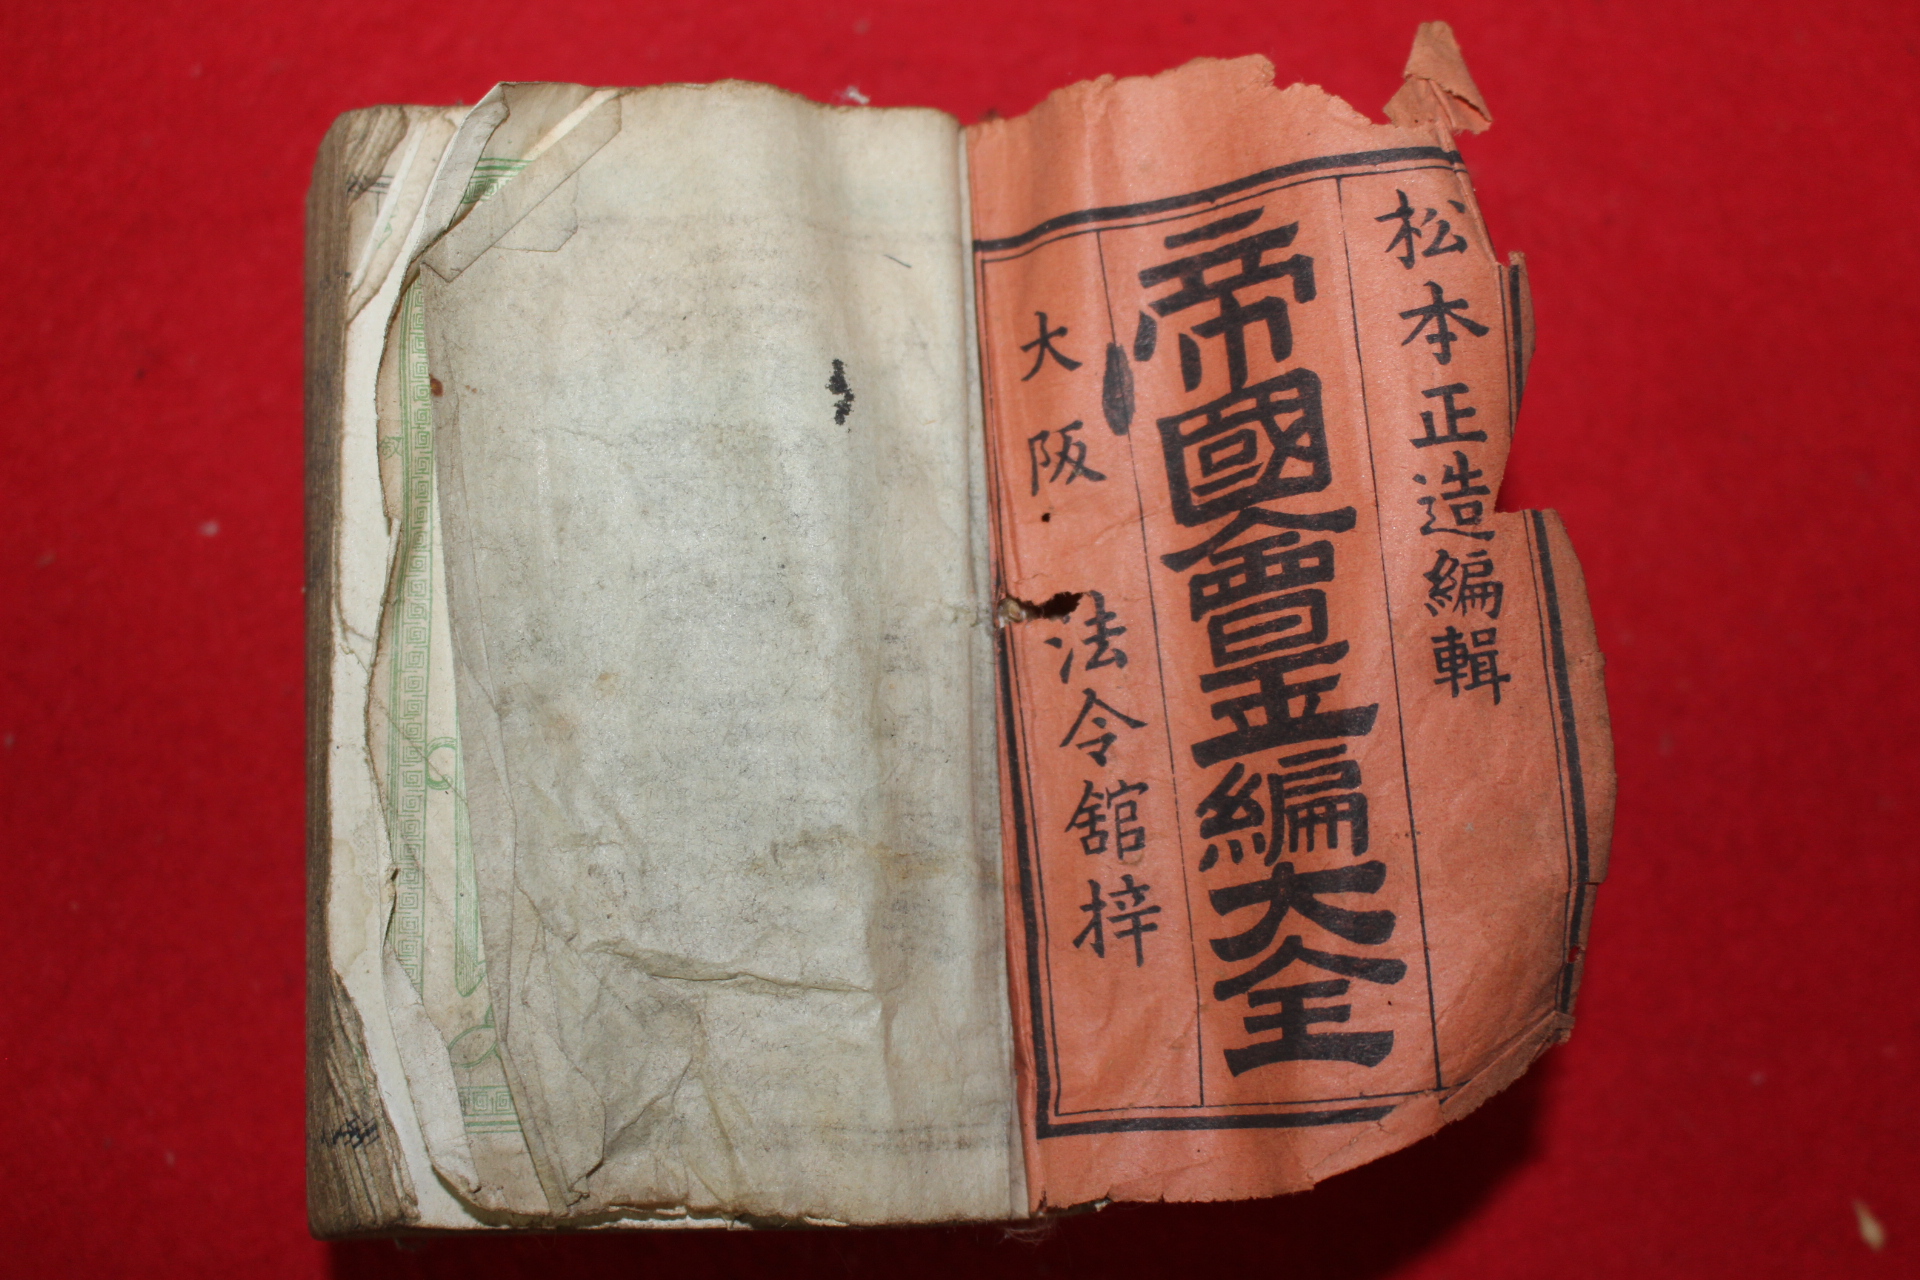 松本正造編輯
帝國會玉編大全
大阪 法令舘梓